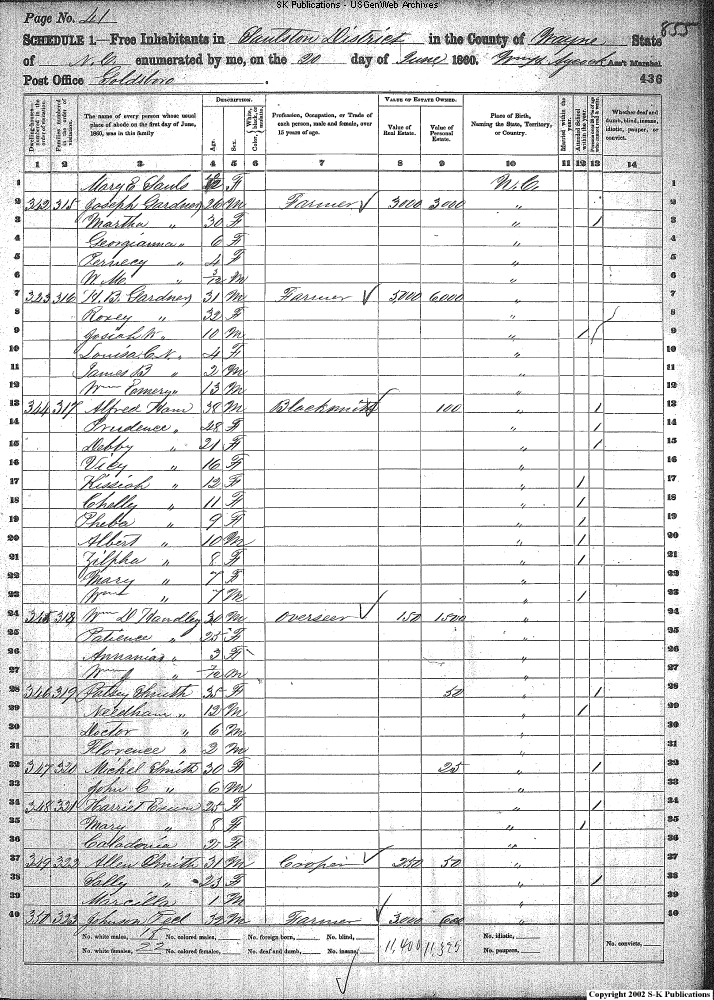 SK Publications - USGenWeb Archives
Page No. 41
855
SCHEDULE 1.—Free Inhabitants in Saulston District in the County of Wayne State
of N. C. enumerated by me, on the 20 day of June 1860. Ass't Marshal
Post Office Goldsboro. 436
DESCRIPTION. VALUE OF ESTATE OWNED.
Dwelling-houses—numbered in the order of visitation.
Families numbered in the order of visitation.
The name of every person whose usual place of abode on the first day of June, 1860, was in this family
Age.
Sex.
Color, White, black, or mulatto.
Profession, Occupation, or Trade of each person, male and female, over 15 years of age.
Value of Real Estate.
Value of Personal Estate.
Place of Birth, Naming the State, Territory, or Country.
Married within the year.
Attended School within the year.
Whether deaf and dumb, blind, insane, idiotic, pauper, or convict.
1 2 3 4 5 6 7 8 9 10 11 12 13 14
1 Mary E Sauls F N. C. 1
2 342 315 Joseph Gardner 26 M Farmer ✓ 3000 3000 " 2
3 Martha " 30 F " / 3
4 Georgianna " 6 F " 4
5 Pernecy " 4 F " 5
6 W. M. " 3/12 M " 6
7 323 316 H. B. Gardner 31 M Farmer ✓ 5,000 6000 " 7
8 Roxey " 32 F 8
9 Josiah W. " 10 M " / 9
10 Louisa C. N. " 4 F " 10
11 James B " 2 M 11
12 Wm Emery " 13 M 12
13 344 317 Alfred Ham 38 M Blacksmith 100 " / 13
14 Prudence " 48 F " / 14
15 Debby " 21 F " / 15
16 Vicy " 16 F " 16
17 Kissiah " 12 F " / 17
18 Chelly " 11 F " / 18
19 Pheba " 9 F " / 19
20 Albert " 10 M " / 20
21 Zilpha " 8 F " / 21
22 Mary " 7 F " 22
23 Wm " 7 M " / 23
24 345 318 Wm D Handley 30 M Overseer ✓ 150 1500 " 24
25 Patience " 25 F " 25
26 Annanias " 3 F " 26
27 Wm J " 7/12 M " 27
28 346 319 Patsy Smith 35 F 50 " / 28
29 Needham " 12 M " / 29
30 Doctor " 6 M " 30
31 Florence " 2 M " 31
32 347 320 Michel Smith 30 F 25 " / 32
33 John C " 6 M " 33
34 348 321 Harriet Exum 25 F " / 34
35 Mary " 8 F " / 35
36 Caladonia " 2 F " 36
37 349 322 Allen Smith 31 M Cooper ✓ 250 50 " 37
38 Sally " 25 F " / 38
39 Marcilla 1 M " 39
40 350 323 M Farmer ✓ 3,000 600 " 40
No. white males, 18 No. colored males, No. foreign born, No. blind, No. idiotic,
No. white females, 22 No. colored females, No. deaf and dumb, No. insane, 11,400 No. paupers, No. convicts,
Copyright 2002 S-K Publications